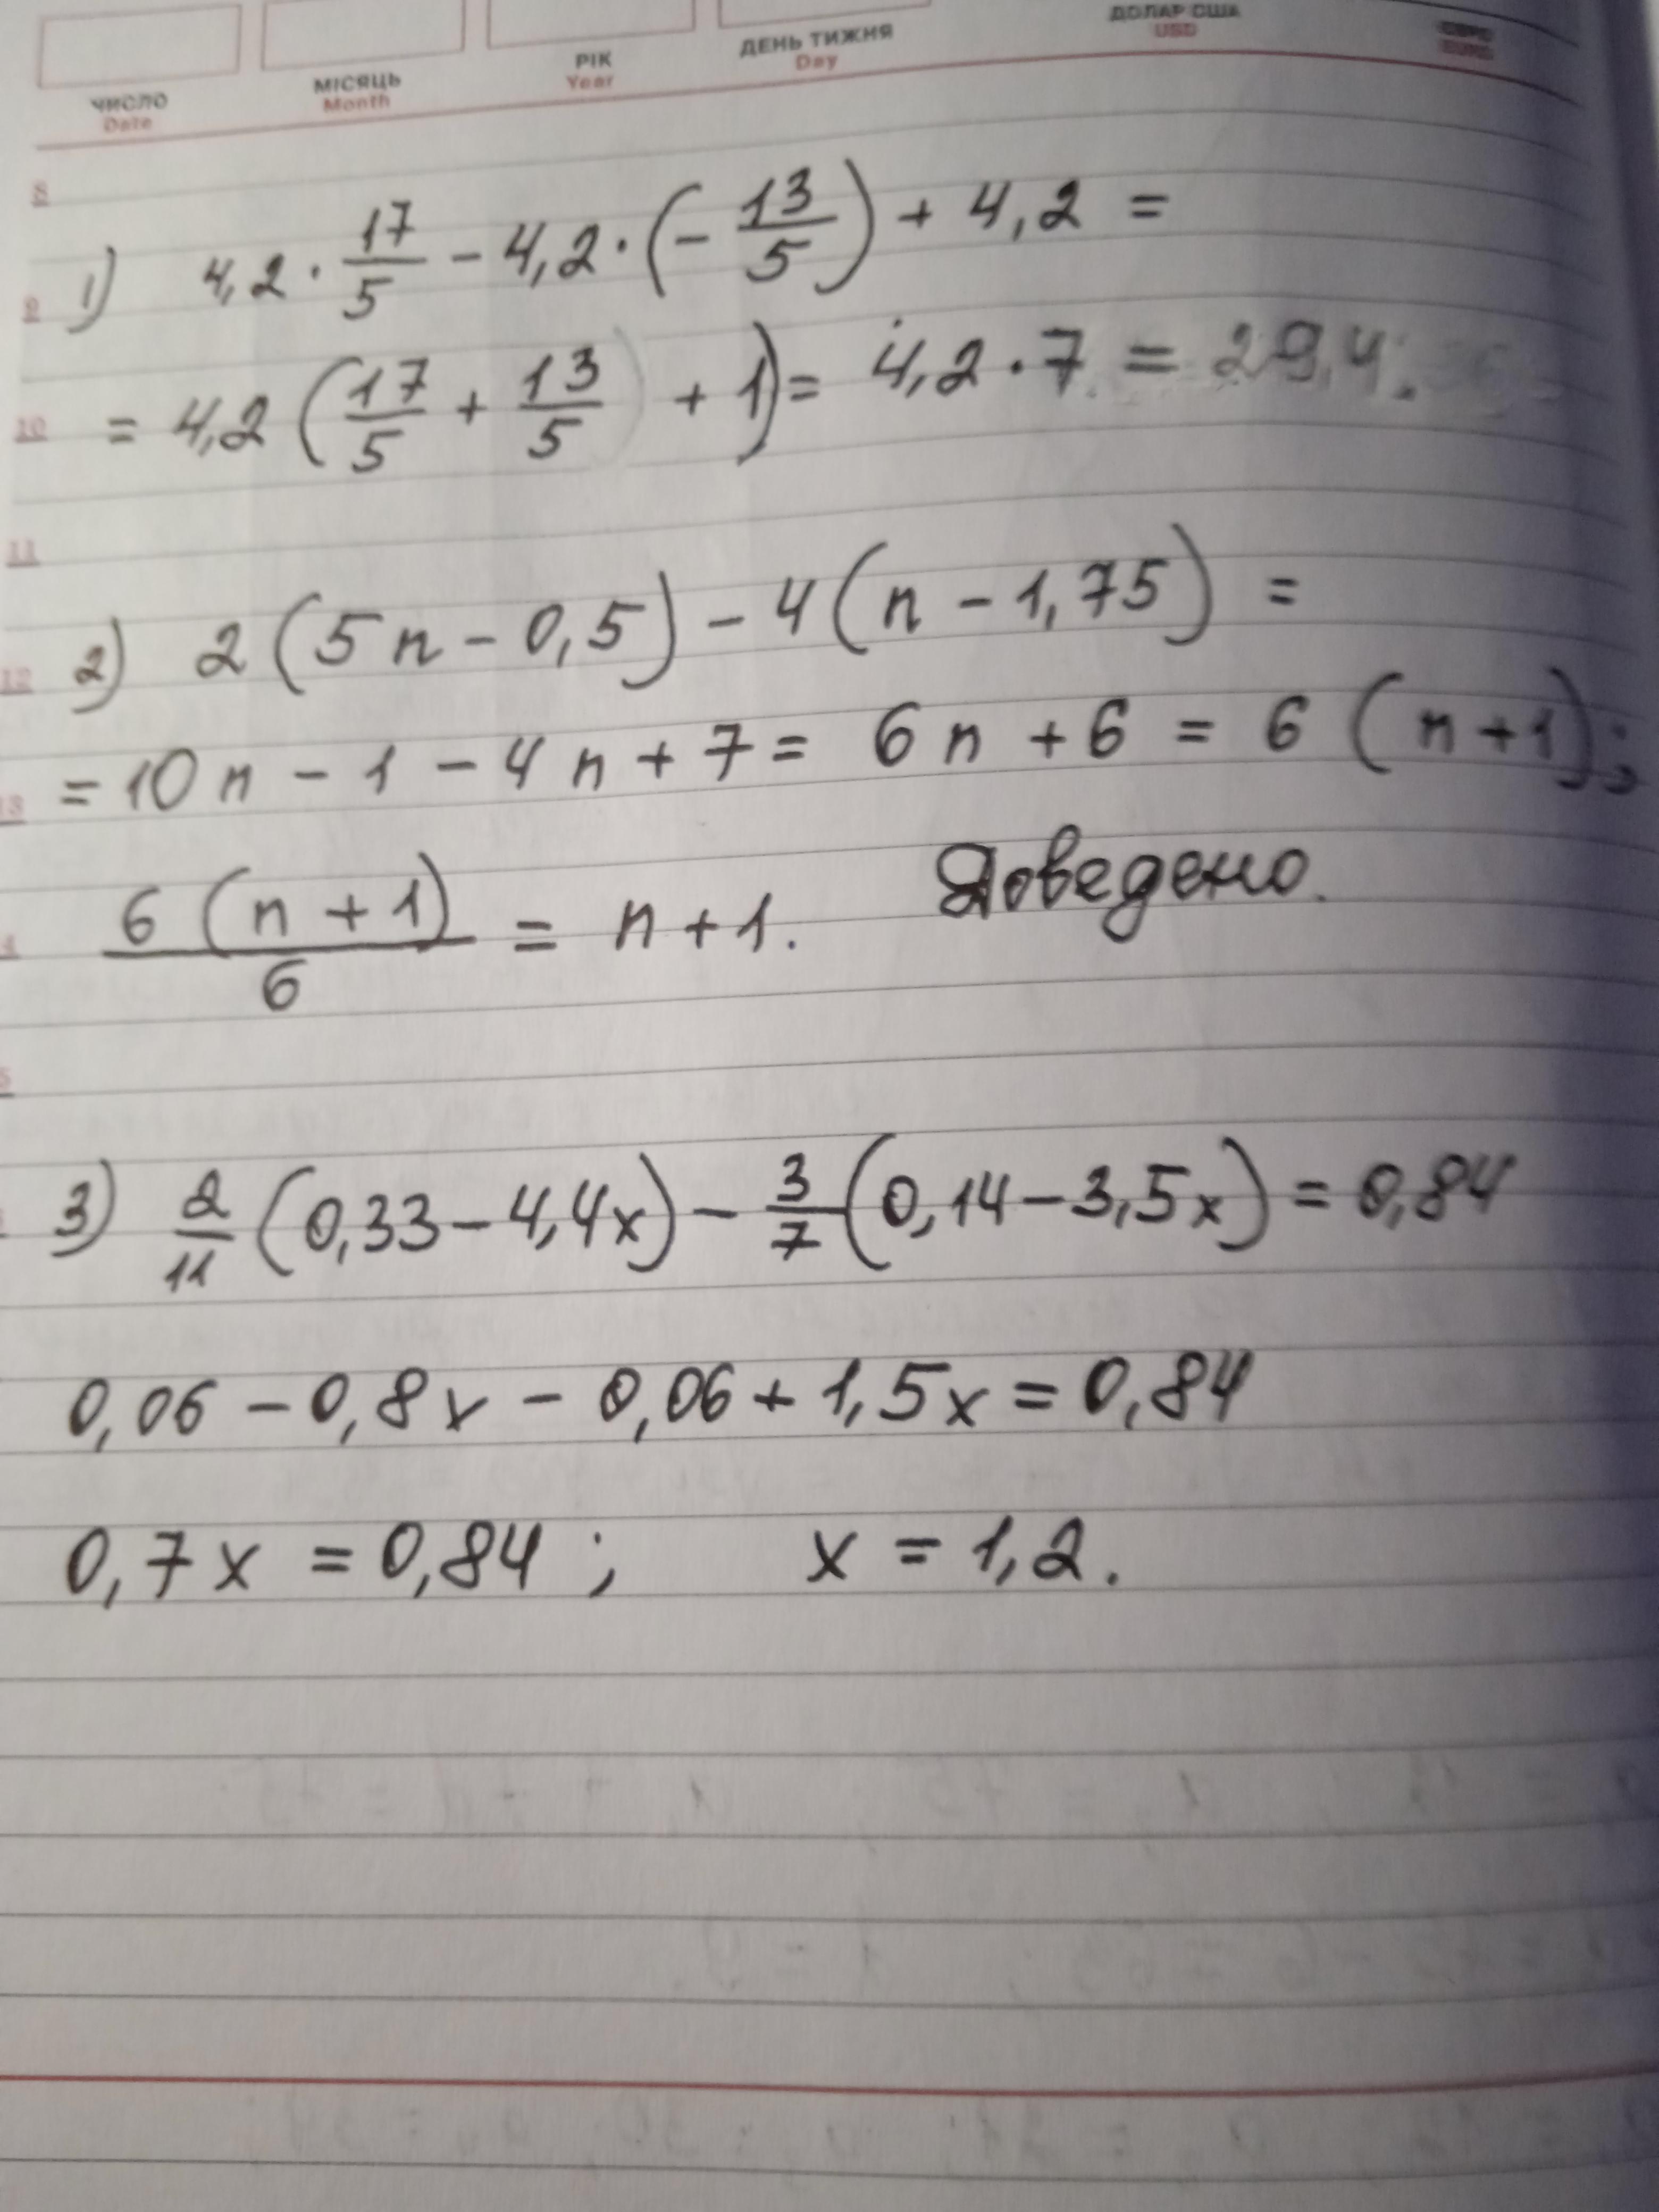 ЧИСЛО МІСЯЦЬ РІК ДЕНЬ ТИЖНЯ ДОЛАР США
Date Month Year Day USD
8
1) 4,2 · 17/5 - 4,2 · (- 13/5) + 4,2 =
9
= 4,2 (17/5 + 13/5 + 1) = 4,2 · 7 = 29,4.
10
11
2) 2 (5n - 0,5) - 4 (n - 1,75) =
12
= 10n - 1 - 4n + 7 = 6n + 6 = 6 (n + 1);
13
6 (n + 1)/6 = n + 1. Доведено.
3) 2/11 (0,33 - 4,4x) - 3/7 (0,14 - 3,5x) = 0,84
0,06 - 0,8x - 0,06 + 1,5x = 0,84
0,7x = 0,84; x = 1,2.